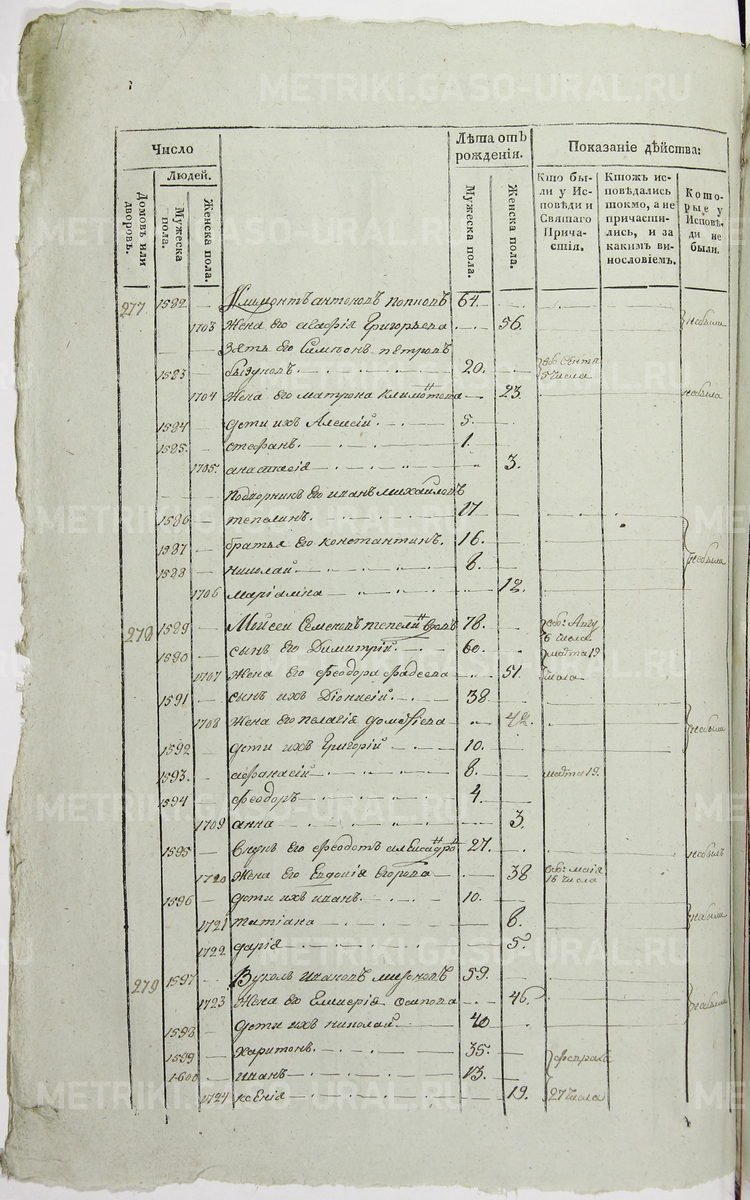 METRIKI.GASO-URAL.RU
Число
Лѣта отъ рожденія.
Показаніе дѣйства:
Людей.
Домовъ или дворовъ.
Мужеска пола.
Женска пола.
Мужеска пола.
Женска пола.
Кто были у Исповѣди и Святаго Причастія.
Ктожъ исповѣдались токмо, а не причастились, и за какимъ винословіемъ.
Которые у Исповѣди не были.
277 1582 Климонтъ антоновъ поповъ 64.
1703 Жена Его Григорьева 56. небыла
Зять его Симеонъ петровъ
1583 20. 5 числа
1704 Жена его матрона 23. небыла
1584 дети ихъ Алексій 5.
1585. стефанъ 1.
1705. анастасія 3.
Его иванъ михайловъ
1586 тепелинъ. 17
1587 братья Его константинъ. 16.
1588 николай 8. небыла
1706 маріамна 12.
278 1589 Мойсей Семеновъ 78. 6 числа
1590 сынъ его Димитрій 60. марта 19
1707 жена Его Феодора Фадеева 51. числа
1591 сынъ ихъ Діонисій 38.
1708 жена Его пелагія 42. небыла
1592 дети ихъ Григорій 10.
1593. афанасій 8. марта 19.
1594 феодоръ 4.
1709 анна 3.
1595 внукъ его феодотъ 27. небылъ
1720 жена Его Евдокія Егорова 38 маія 16 числа
1596 дети ихъ иванъ. 10.
1721 татіана 8. небыла
1722 дарія 5.
279 1597 Вуколъ ивановъ мироновъ 59.
1723 Жена Его осипова 46. небыла
1598 дети ихъ николай 40
1599 харитонъ. 35. февраля
1600 иванъ 13.
1724 ксенія 19. 27 числа